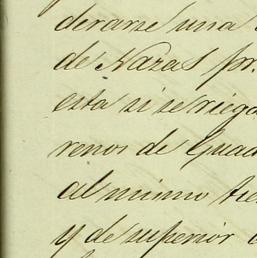 derarse una
de Nazas pr.
esta si se riega
renos de Guad
al mismo tie
y de superior